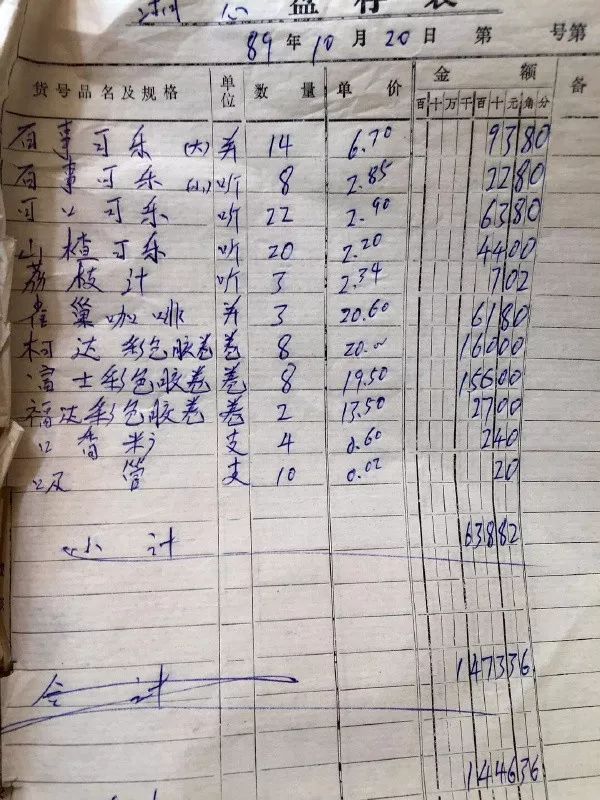 盘存表
89年10月20日 第 号第
货号品名及规格 单位 数量 单价 金额 备
百十万千百十元角分
百事可乐(大) 并 14 6.70 9380
百事可乐(小) 听 8 2.85 2280
可口可乐 听 22 2.90 6380
山楂可乐 听 20 2.20 4400
荔枝汁 听 3 2.34 702
雀巢咖啡 并 3 20.60 6180
柯达彩色胶卷 卷 8 20.00 16000
富士彩色胶卷 卷 8 19.50 15600
福达彩色胶卷 卷 2 13.50 2700
口香糖 支 4 0.60 240
吸管 支 10 0.02 20
小计 63882
147336
合计
144636